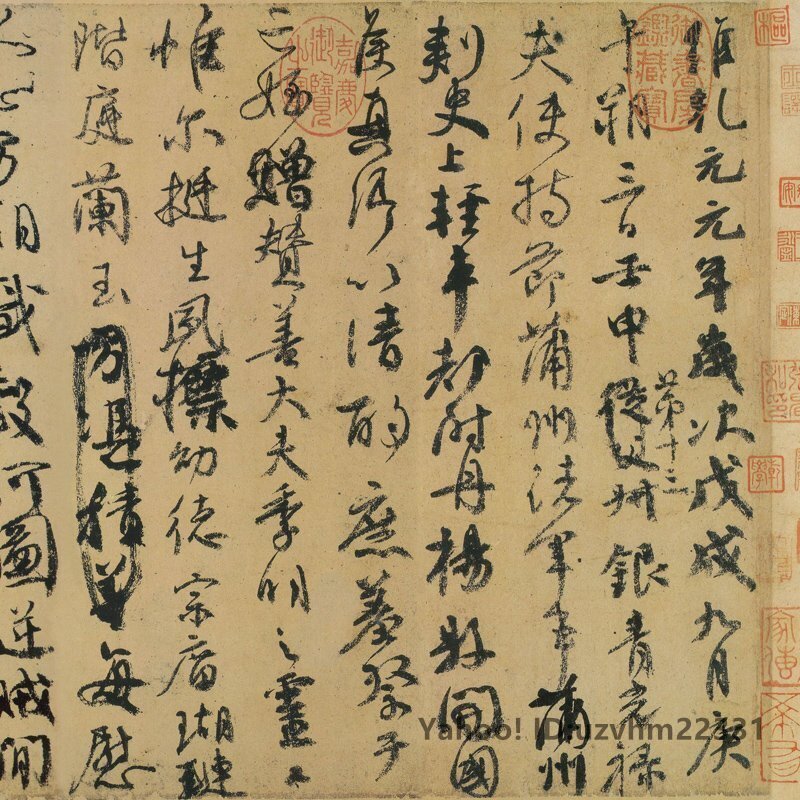 維乾元元年歲次戊戌九月庚
午朔三日壬申
第十三
從父叔銀青光祿
夫使持節蒲州諸軍事蒲州
刺史上輕車都尉丹楊縣開國
侯真卿以清酌庶羞祭于
亡姪贈贊善大夫季明之靈曰
惟爾挺生夙標幼德宗廟瑚璉
階庭蘭玉方憑積善每慰
人心方期戩穀何圖逆賊間
嘉慶御覽之寶
御書房鑑藏寶
Yahoo! ID:uzvhm22131